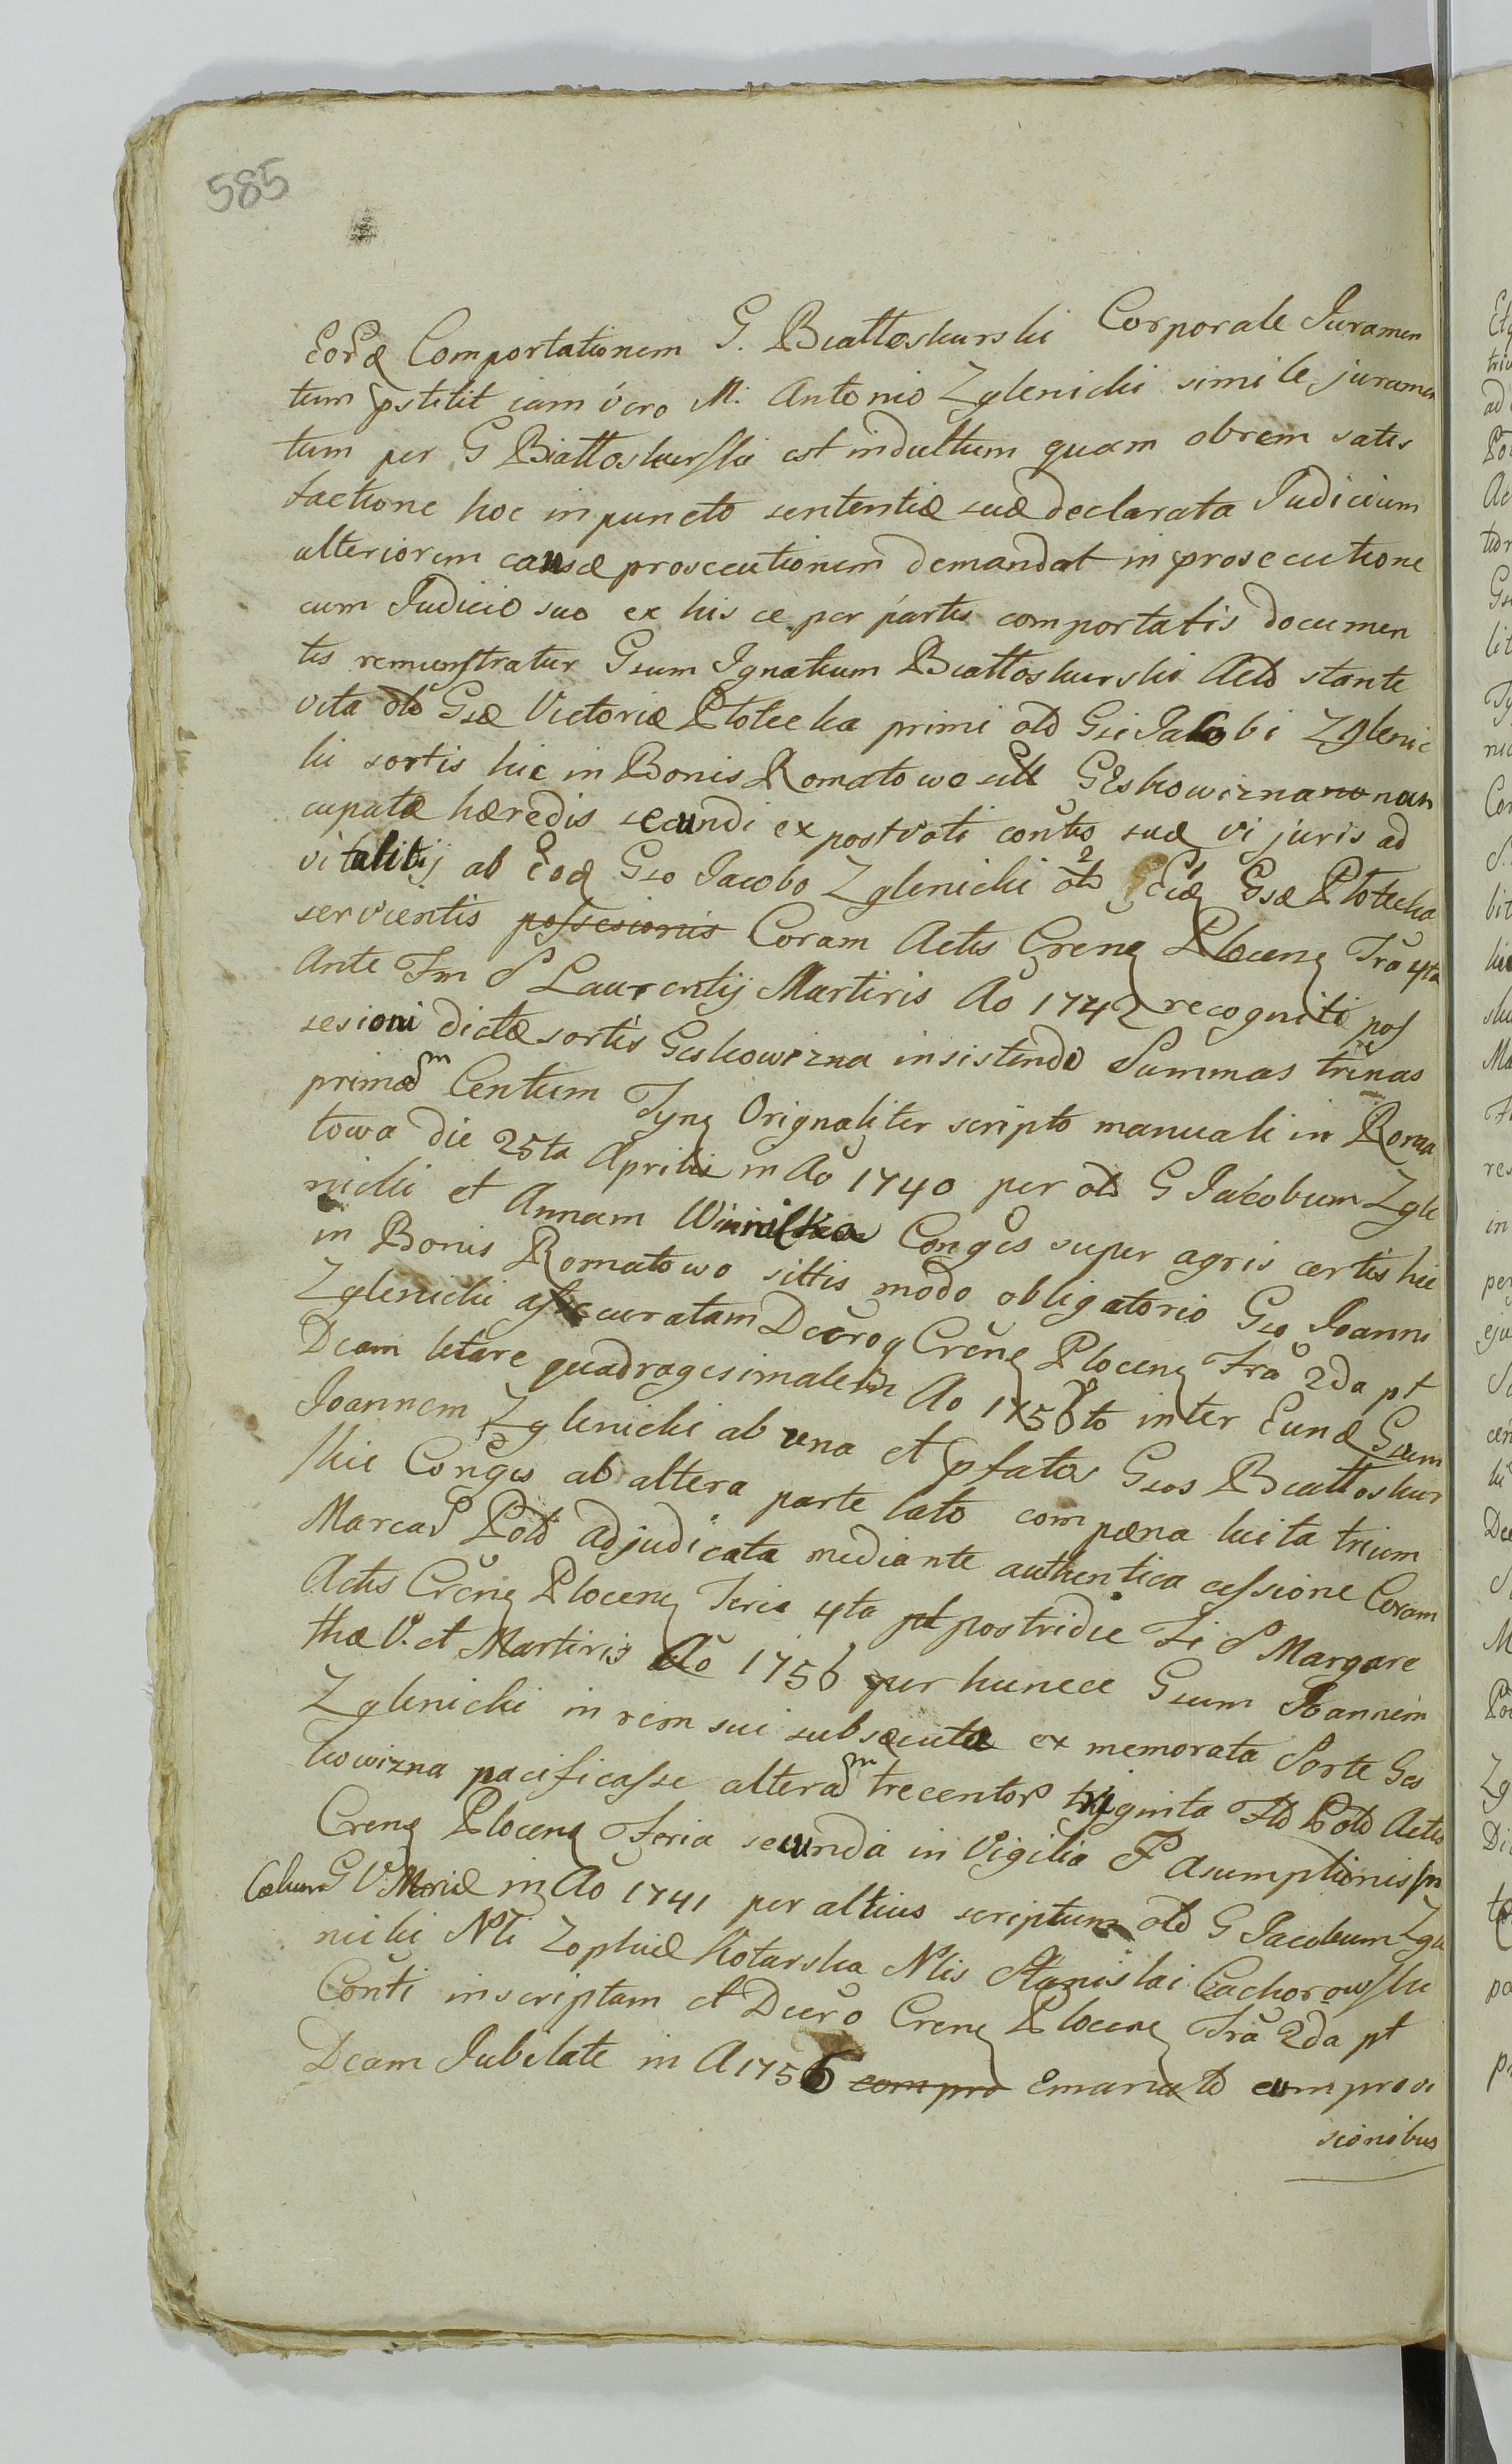 585
Eorđ Comportationem G. Białłoskurski Corporale Juramen
tum pstitit iam vero M. Antonio Zglenicki simile juramen
tum per G Białłoskurski est indultum quam obrem satis
factione hoc in puncto sententiæ suæ declarata Judicium
ulteriorem causæ prosecutionem demandat in prosecutione
cum Judicio suo ex his ce per partes comportatis documen
tis remunstratur Gsum Ignatium Białłoskurski Actô stante
vita olô Gsæ Victoriæ Płotecka primi olô Gsi Jakobi Zglenic
ki sortis hic in Bonis Romatowo sitt Geskowizna nun
cupatæ hæredis secundi ex post voti contis suæ vi juris ad
vitalitij ab Eod Gso Jacobo Zglenicki 2 olô Ejd Gsæ Płotecka
servientis possesionis Coram Actis Crenę Płocenę Fra 4ta
Ante Fm S Laurentij Martiris Aô 1742 recogniti pos
sesioni dictæ sortis Geskowizna insistendo Summas trinas
primam Centum Tynę Orignaliter scripto manuali in Roma
towo die 25ta Aprilis in Aô 1740 per olô G Jakobum Zgle
nicki et Annam Winnicka Conges super agris certis hic
in Bonis Romatowo sittis modo obligatorio Gso Joanni
Zglenicki assecuratam Decroq Crenę Płocenę Fra 2da pt
Dcam letare quadragesimalem Aô 1756to inter Eund Gsum
Joannem Zglenicki ab una et pfatos Gsos Białłoskur
skie Conges ab altera parte lato com pæna luita trium
Marcas Polô adjudicata mediante authentica cessione Coram
Actis Crenę Płocenę Feria 4ta pt postridie Fi S Margare
thæ V. et Martiris Aô 1756 per huncce Gsum Joannem
Zglenicki in rem sui subsecuta ex memorata Sorte Ges
kowizna pacificasse alteram trecentos triginta Flô Polô Actis
Crenę Płocenę Feria secunda in Vigilia F Asumptionis in
Cælum G V Mariæ in Aô 1741 per altius scriptum olô G Jacobum Zgle
nicki Nli Zophiæ Kotarska Nlis Stanislai Cachorowski
Conti inscriptam et Decro Crenę Płocenę Fra 2da pt
Dcam Jubilate in A 1756 compro Emanato cum provi
sionibus